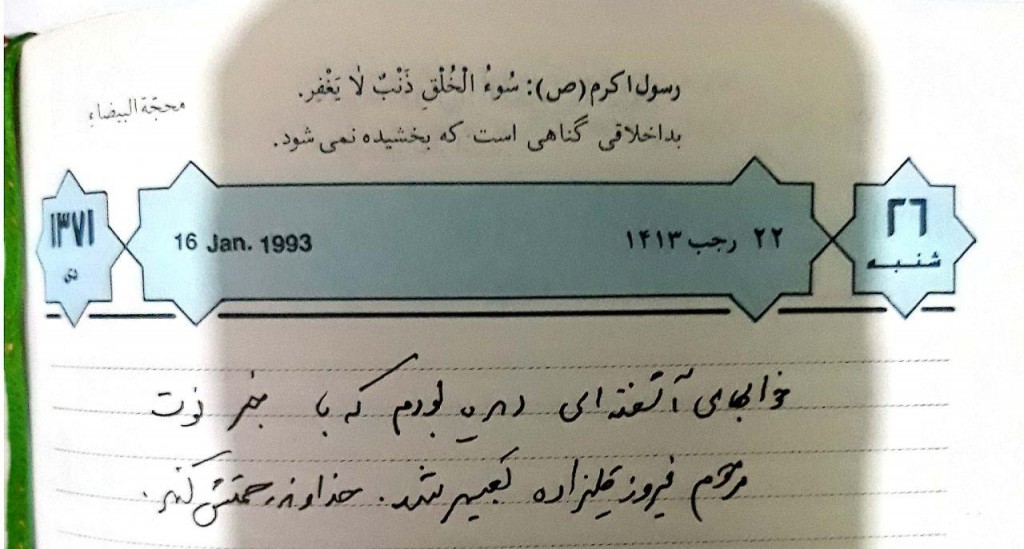 رسول اکرم (ص): سُوءُ الْخُلْقِ ذَنْبٌ لٰا یَغْفِر.
محجّة البیضاءِ
بداخلاقی گناهی است که بخشیده نمی شود.
۲۶
شنبه
۲۲ رجب ۱۴۱۳
16 Jan. 1993
۱۳۷۱
دی
خوابهای آشفته‌ای دیده بودم که با خبر فوت
مرحوم فیروز قلیزاده تعبیر شد. خداوند رحمتش کند.